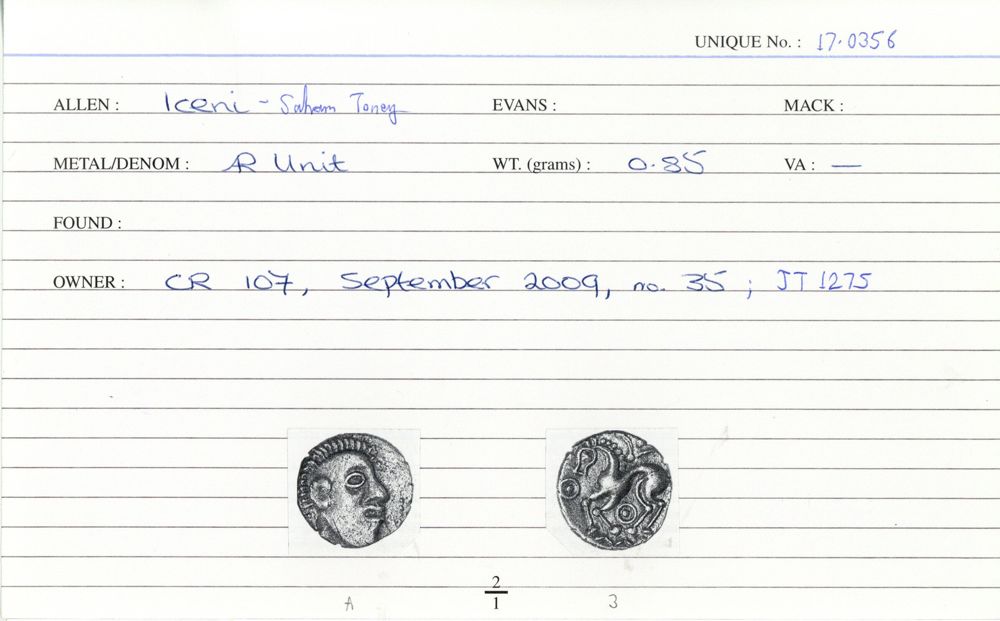 UNIQUE No. : 17.0356
ALLEN : Iceni - Saham Toney EVANS : MACK :
METAL/DENOM : AR Unit WT. (grams) : 0.85 VA : —
FOUND :
OWNER : CR 107, September 2009, no. 35 ; JT 1275
2
A 1 3